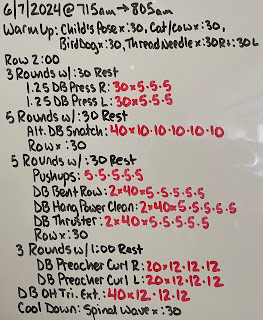 6/7/2024 @ 715am → 805am
Warm Up: Child's Pose x :30, Cat/Cow x :30,
Birddog x :30, Thread Needle x :30 R+:30 L
Row 2:00
3 Rounds w/ :30 Rest
1.25 DB Press R: 30x5·5·5
1.25 DB Press L: 30x5·5·5
5 Rounds w/ :30 Rest
Alt. DB Snatch: 40x10·10·10·10·10
Row x :30
5 Rounds w/ :30 Rest
Pushups: 5·5·5·5·5
DB Bent Row: 2x40x5·5·5·5·5
DB Hang Power Clean: 2x40x5·5·5·5·5
DB Thruster: 2x40x5·5·5·5·5
Row x :30
3 Rounds w/ 1:00 Rest
DB Preacher Curl R: 20x12·12·12
DB Preacher Curl L: 20x12·12·12
DB OH Tri. Ext.: 40x12·12·12
Cool Down: Spinal Wave x :30